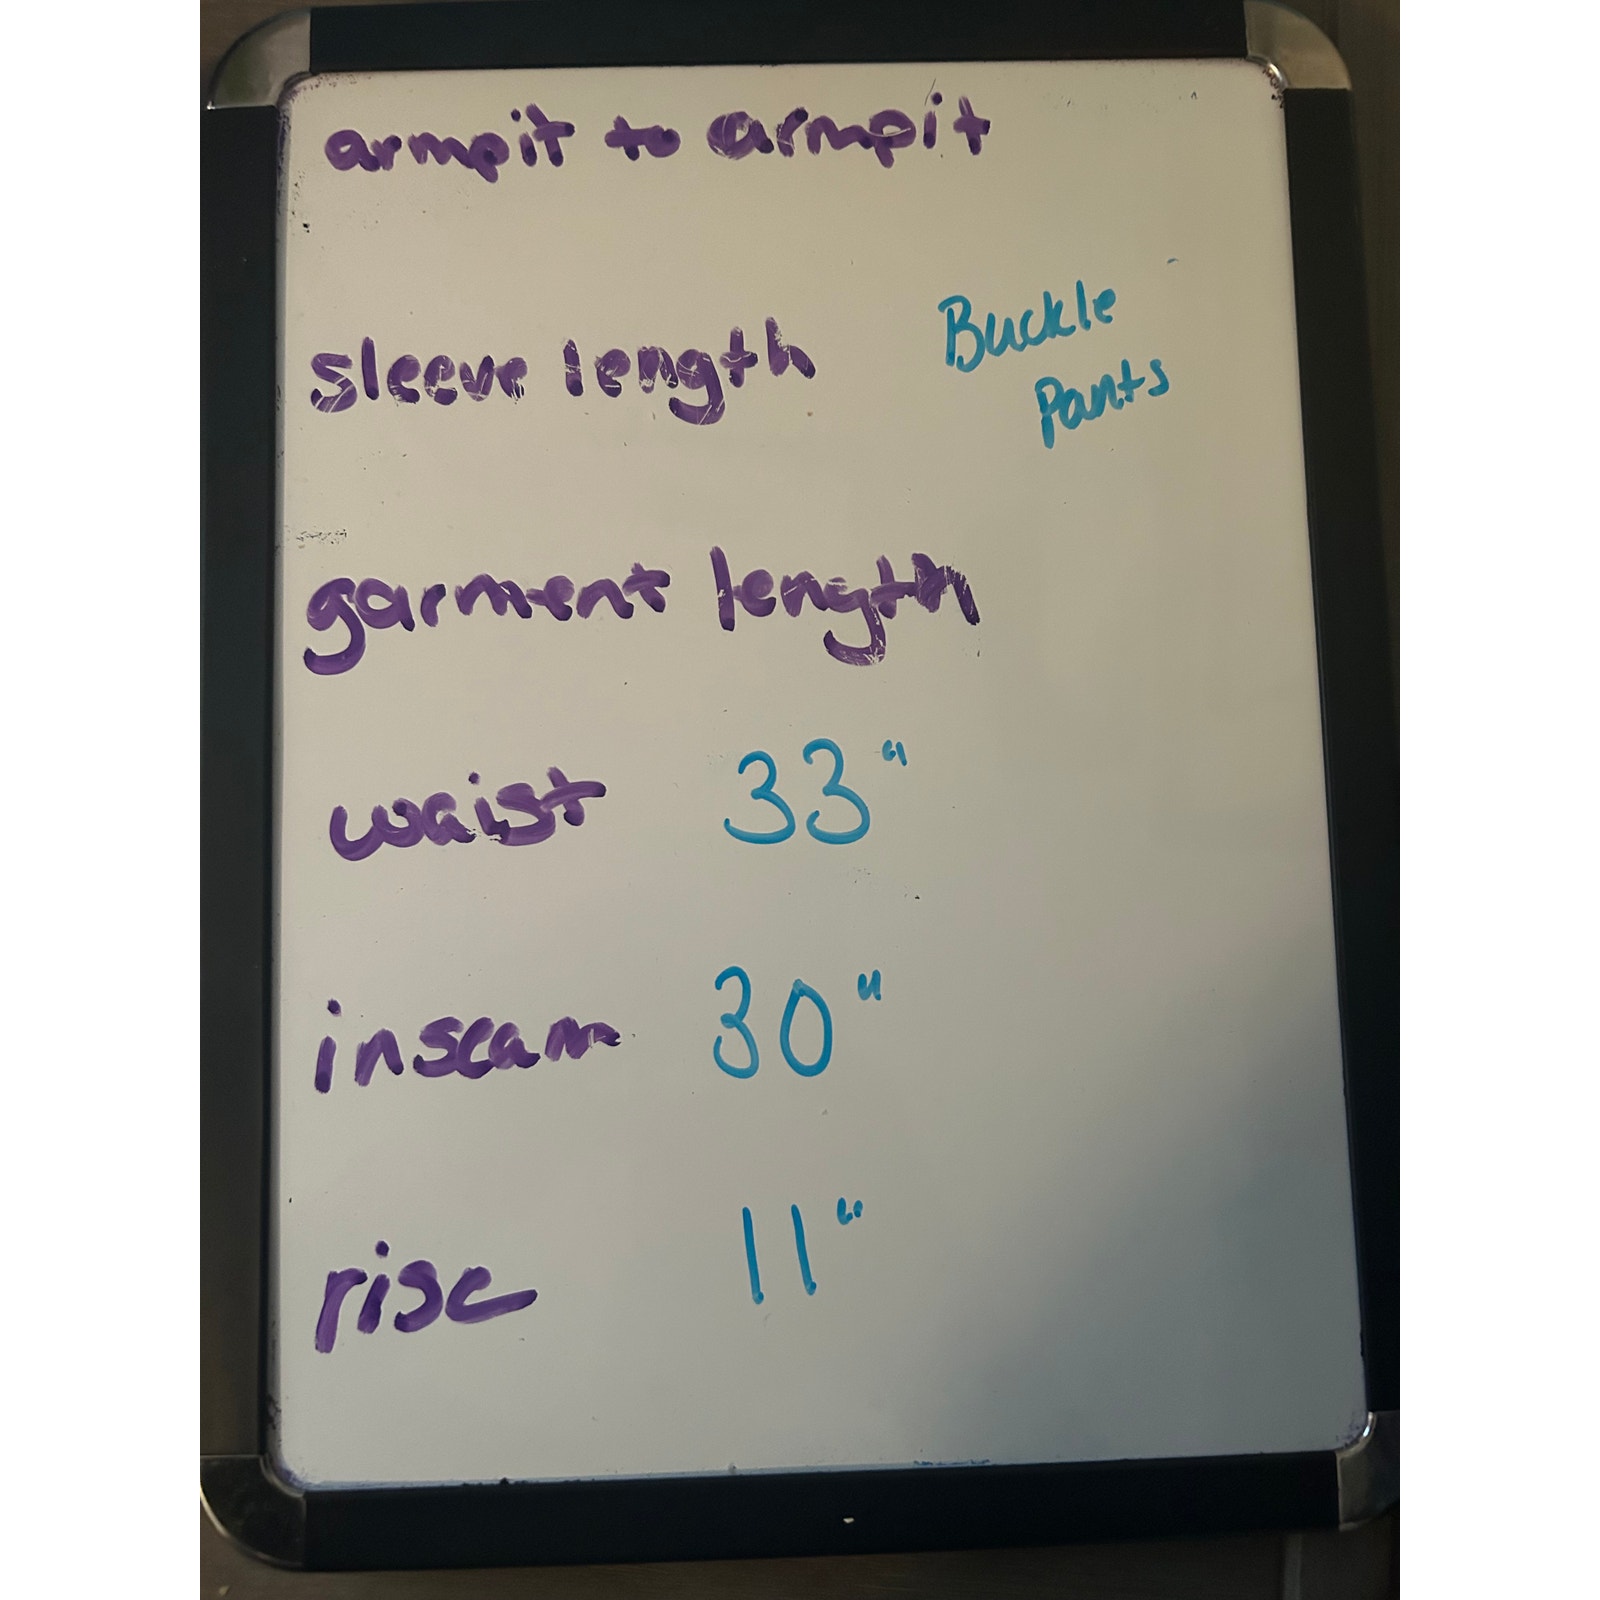 armpit to armpit
sleeve length
Buckle
Pants
garment length
waist 33"
inseam 30"
rise 11"